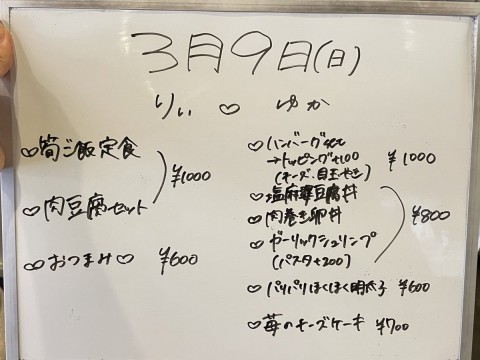 3月9日(日)
りぃ ♡ ゆか
♡筍ご飯定食
♡肉豆腐セット
¥1000
♡おつまみ♡ ¥600
♡ハンバーグset
→トッピング+100
(チーズ、目玉やき)
¥1000
♡塩麻婆豆腐丼
♡肉巻き卵丼
♡ガーリックシュリンプ
(パスタ+200)
¥800
♡パリパリほくほく明太子 ¥600
♡苺のチーズケーキ ¥700